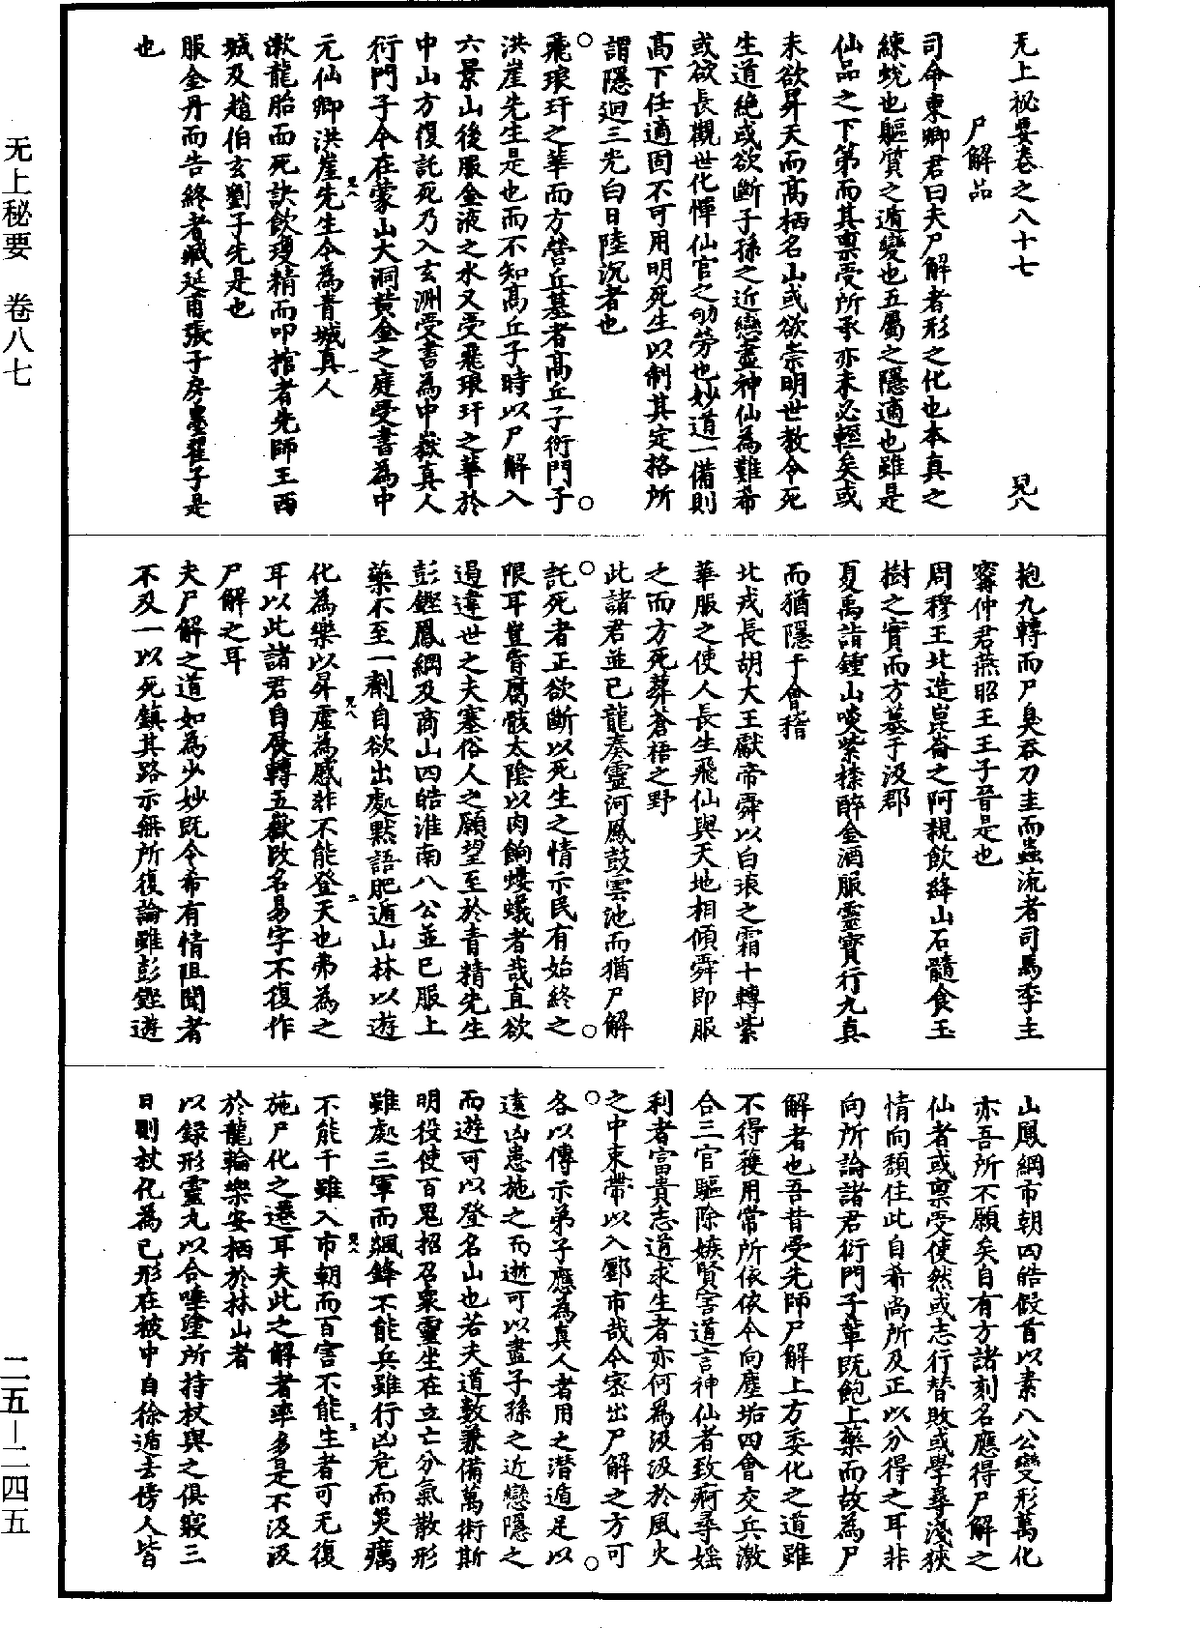 无上秘要卷之八十七 兒八
尸解品
司命東卿君曰夫尸解者形之化也本真之
練蛻也軀質之遁變也五屬之隱適也雖是
仙品之下第而其禀受所承亦未必輕矣或
未欲昇天而高栖名山或欲崇明世教令死
生道絶或欲斷子孫之近戀盡神仙為難希
或欲長觀世化憚仙官之劬勞也妙道一備則
高下任適固不可用明死生以制其定格所
謂隱迴三光白日陸沉者也
○飛琅玕之華而方營丘墓者高丘子衍門子○
洪崖先生是也而不知高丘子時以尸解入
六景山後服金液之水又受飛琅玕之華於
中山方復託死乃入玄洲受書為中嶽真人
衍門子今在蒙山大洞黃金之庭受書為中
元仙卿洪崖先生今為青城真人
漱龍胎而死訣飲瓊精而叩棺者先師王西
城及趙伯玄劉子先是也
服金丹而告終者臧延甫張子房墨翟子是
也
抱九轉而尸臭吞刀圭而蟲流者司馬季主
甯仲君燕昭王王子晉是也
周穆王北造崑崙之阿親飲絳山石髓食玉
樹之實而方墓于汲郡
夏禹詣鍾山啖紫柰醉金酒服靈寶行九真
而猶隱于會稽
北戎長胡大王獻帝舜以白琅之霜十轉紫
華服之使人長生飛仙與天地相傾舜即服
之而方死葬蒼梧之野
此諸君並已龍奏靈河鳳鼓雲池而猶尸解
○託死者正欲斷以死生之情示民有始終之○
限耳豈肯腐骸太陰以肉餉螻蟻者哉直欲
遏違世之夫塞俗人之願望至於青精先生
彭鏗鳳綱及商山四皓淮南八公並已服上
藥不至一劑自欲出處默語肥遁山林以遊
化為樂以昇虛為慼非不能登天也弗為之
耳以此諸君自展轉五嶽改名易字不復作
尸解之耳
夫尸解之道如為少妙既令希有情阻聞者
不及一以死鎮其路示無所復論雖彭鏗遊
山鳳綱市朝四皓假首以素八公變形萬化
亦吾所不願矣自有方諸刻名應得尸解之
仙者或禀受使然或志行替敗或學尋淺狹
情向頹住此自希尚所及正以分得之耳非
向所論諸君衍門子輩既飽上藥而故為尸
解者也吾昔受先師尸解上方委化之道雖
不得獲用常所依依今向塵垢四會交兵激
合三官驅除嫉賢害道言神仙者致痾尋婬
利者富貴志道求生者亦何為汲汲於風火
之中束帶以入酆市哉今密出尸解之方可
○各以傳示弟子應為真人者用之潜遁足以○
遠凶患施之而逝可以盡子孫之近戀隱之
而遊可以登名山也若夫道數兼備萬術斯
明役使百鬼招召衆靈坐在立亡分氣散形
雖處三軍而鋒不能兵雖行凶危而災癘
不能干雖入市朝而百害不能生者可无復
施尸化之遷耳夫此之解者率多是不汲汲
於龍輪樂安栖於林山者
以録形靈丸以合唾塗所持杖與之俱寢三
日則杖化為已形在被中自徐遁去傍人皆
无上秘要 卷八七
二五—二四五